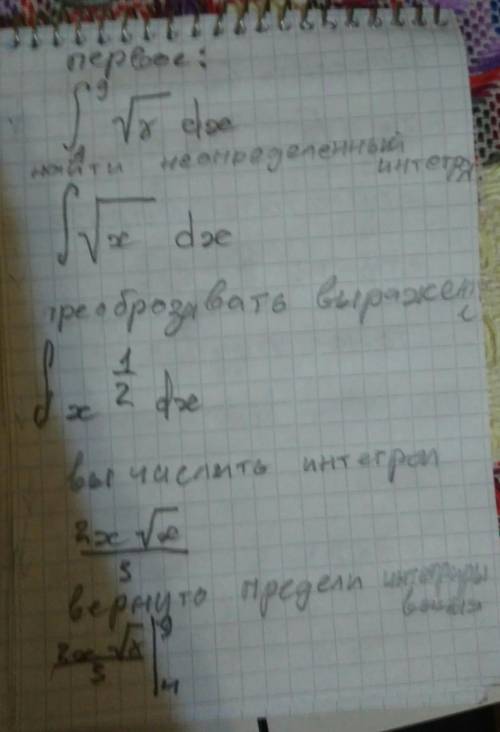 первое:
∫₄⁹ √x dx
найти неопределенный
интегра
∫√x dx
преобразавать выражен
и
∫ x^(1/2) dx
вычислить интеграл
2x√x / 3
вернуто предели интегриры
2x√x / 3 |₄⁹